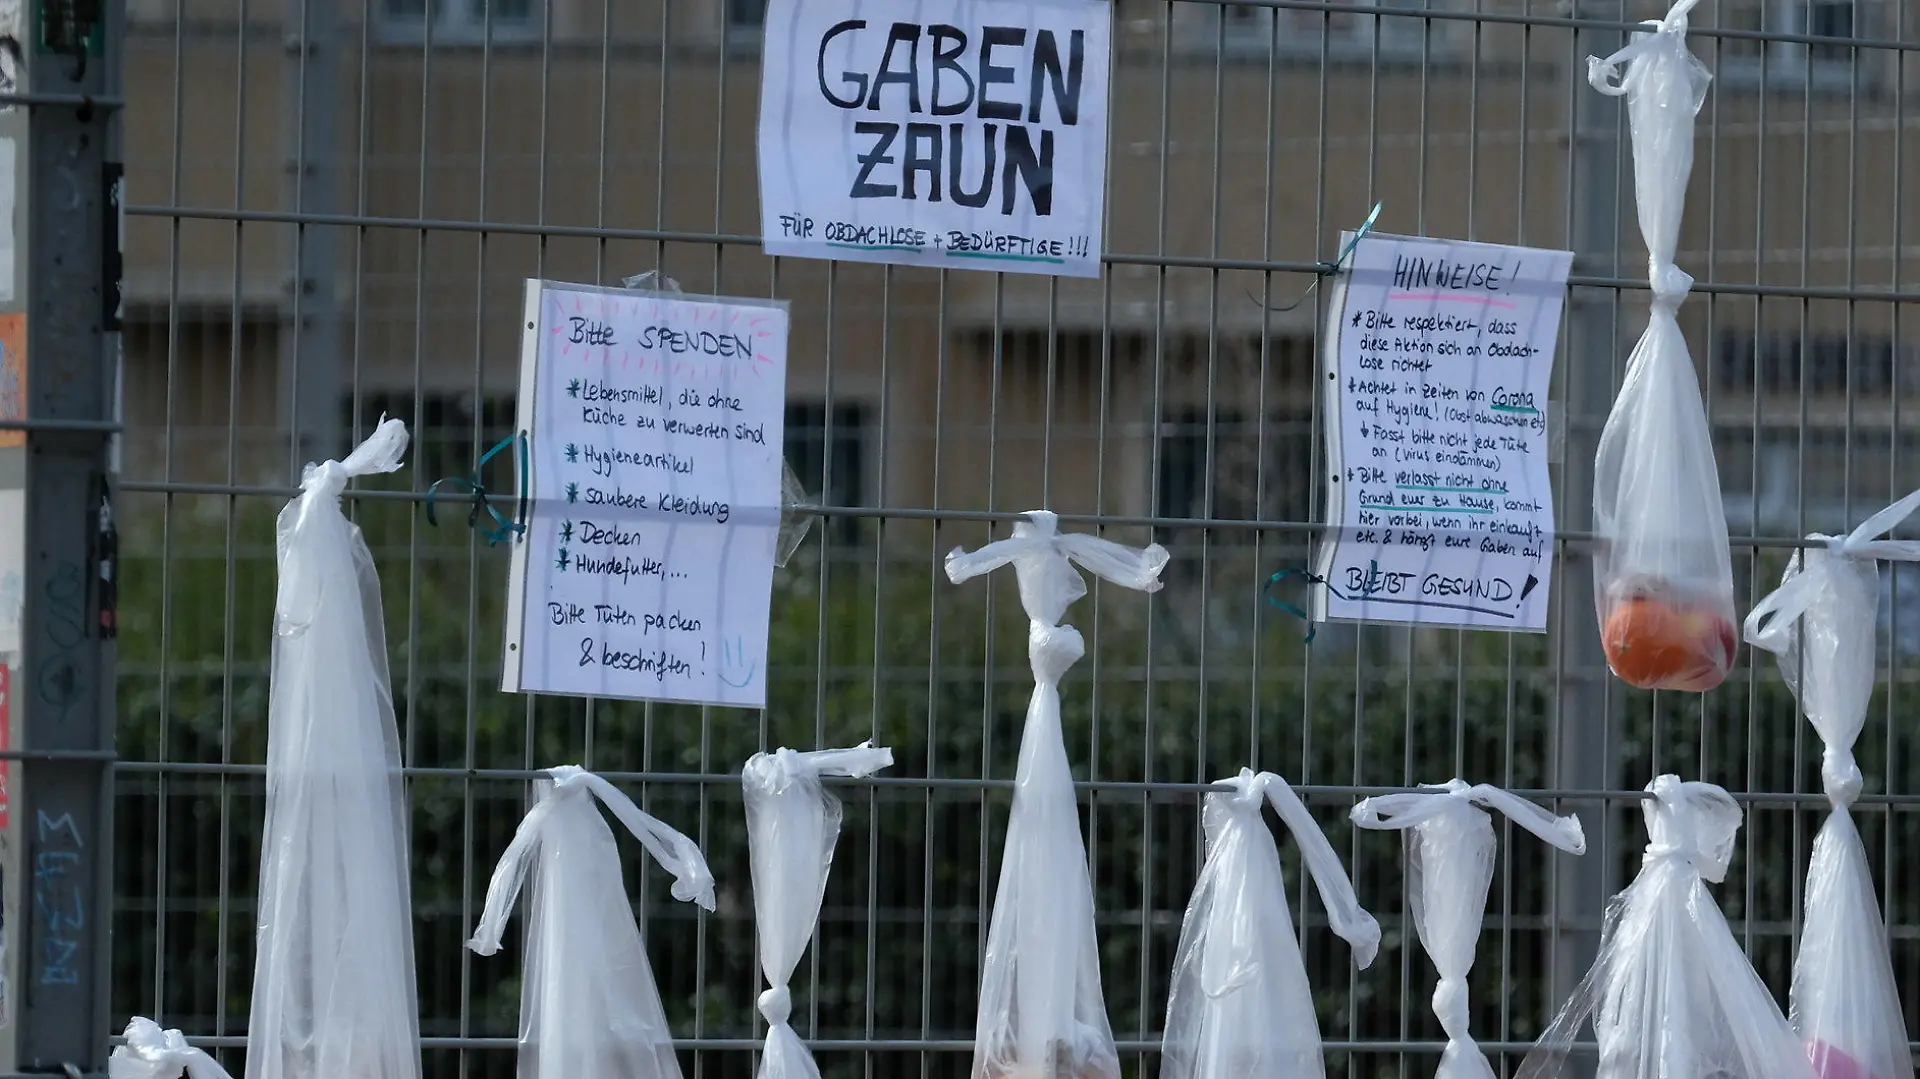 GABEN
ZAUN
FÜR OBDACHLOSE + BEDÜRFTIGE!!!
Bitte SPENDEN
* Lebensmittel, die ohne
Küche zu verwerten sind
* Hygieneartikel
* saubere Kleidung
* Decken
* Hundefutter,...
Bitte Tüten packen
& beschriften!
HINWEISE!
* Bitte respektiert, dass
diese Aktion sich an Obdach-
lose richtet
* Achtet in Zeiten von Corona
auf Hygiene! (Obst abwaschen etc)
↓ Fasst bitte nicht jede Tüte
an (Virus eindämmen)
* Bitte verlasst nicht ohne
Grund euer zu Hause, kommt
hier vorbei, wenn ihr einkauft
etc. & hängt eure Gaben auf
BLEIBT GESUND!